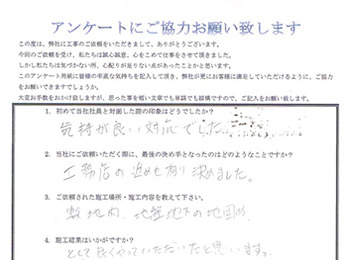 アンケートにご協力お願い致します
この度は、弊社に工事のご依頼をいただきまして、ありがとうございます。
今回のご依頼を受け、私たちは誠心誠意、心をこめて仕事をさせて頂きました。
しかし私たちは気づかない所、心配りが足りない点があったことと思います。
このアンケート用紙に皆様の率直な気持ちを記入して頂き、弊社が更にお客様に満足していただけるように、ご協力
をお願いできますでしょうか。
大変お手数をおかけ致しますが、思った事を短い文章でも単語でも結構ですので、ご記入をお願い致します。
1. 初めて当社社員と対面した際の印象はどうでしたか？
気持が良い対応でした。
2. 当社にご依頼いただく際に、最後の決め手となったのはどのようなことですか？
工務店の進めも有り決めました。
3. ご依頼された施工場所・施工内容を教えて下さい。
敷地内、地盤地下の地固め
4. 施工結果はいかがですか？
とても良くやっていただいたと思います。